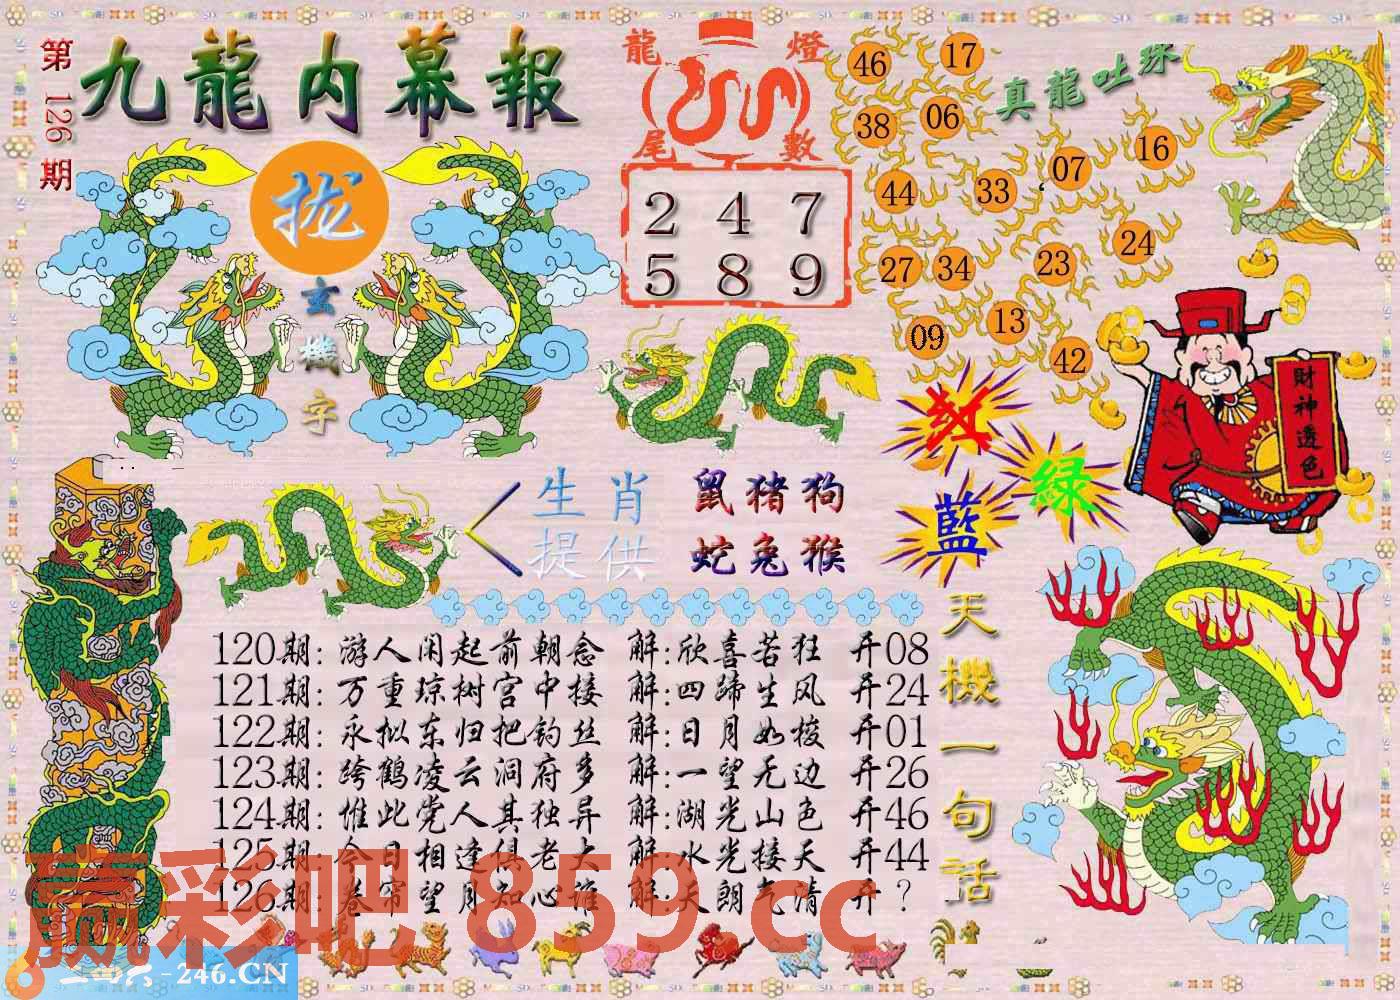 第 126 期
九龍內幕報
拢
玄機字
龍 燈
尾 數
2 4 7
5 8 9
真龍吐珠
46 17
38 06
07 16
44 33
27 34 23 24
09 13 42
財神透色
红
绿
藍
生肖 鼠猪狗
提供 蛇兔猴
120期: 游人闲起前朝念 解:欣喜若狂 开08
121期: 万重琼树宫中接 解:四蹄生风 开24
122期: 永拟东归把钓丝 解:日月如梭 开01
123期: 跨鹤凌云洞府多 解:一望无边 开26
124期: 惟此党人其独异 解:湖光山色 开46
125期: 今日相逢俱老大 解:水光接天 开44
126期: 卷帘望月知心谁 解:天朗气清 开 ?
天機一句話
赢彩吧 859.cc
二四六-246.CN